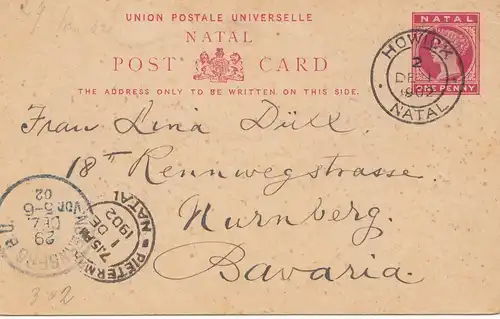 UNION POSTALE UNIVERSELLE
NATAL
POST CARD
THE ADDRESS ONLY TO BE WRITTEN ON THIS SIDE.
NATAL
ONE PENNY
HOWICK
2
DE 1
1902
NATAL
Frau Lina Düll.
18II Rennwegstrasse
Nurnberg.
Bavaria.
NATAL
7.15 PM
1 DE
1902
29
DEZ.
VOR. 5-6
02